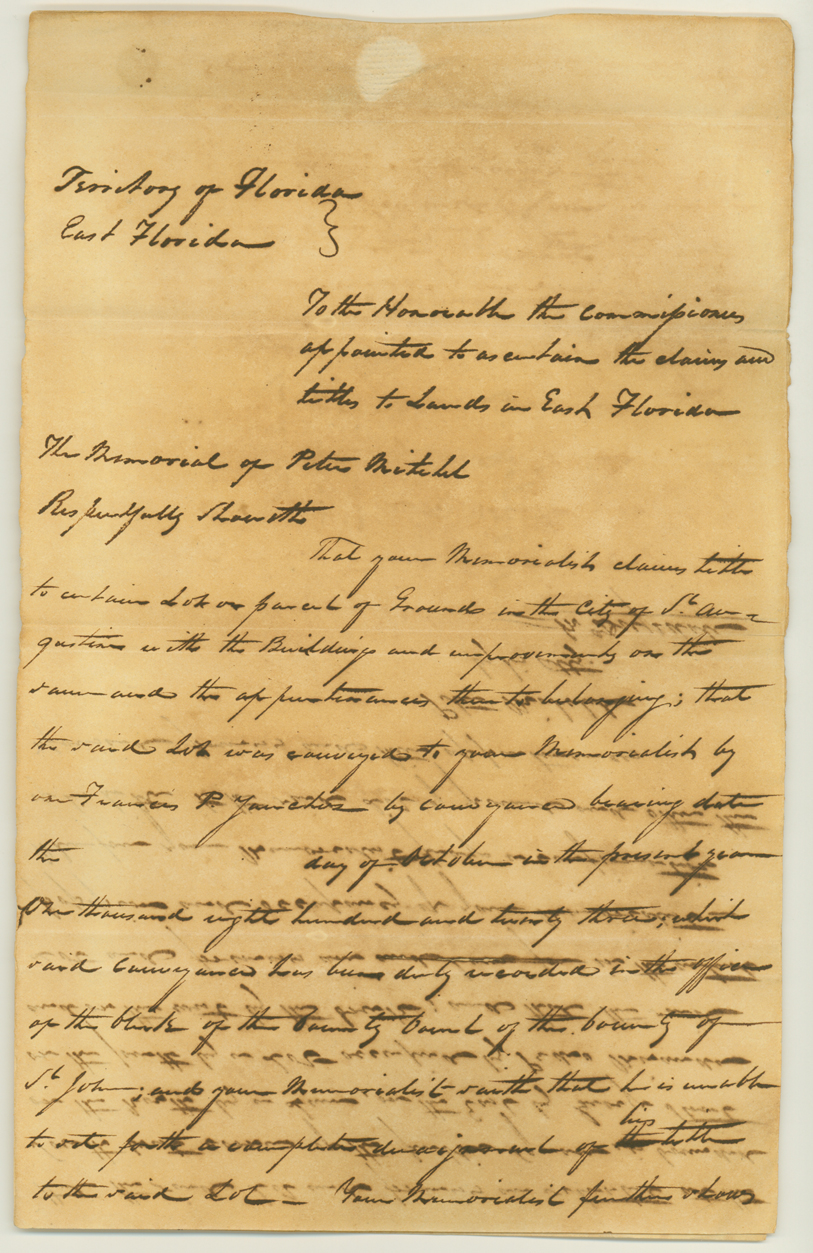 Territory of Florida
East Florida }
To the Honorable the Commissioners
appointed to ascertain the claims and
titles to Lands in East Florida
The Memorial of Peter Mitchel
Respectfully Sheweth
That your Memorialist claims title
to certain Lot or parcel of Grounds in the City of St. Au=
gustine with the Buildings and improvements on the
same and the appurtenances thereto belonging; that
the said Lot was conveyed to your Memorialist by
one Francis P. by conveyance bearing date
the day of October in the present year
One thousand eight hundred and twenty three; which
said Conveyance has been duly recorded in the office
of the Clerk of the County Court of the County of
St. John; and your Memorialist saith that he is unable
to set forth a complete deraignment of the his title
to the said Lot — Your Memorialist further shows